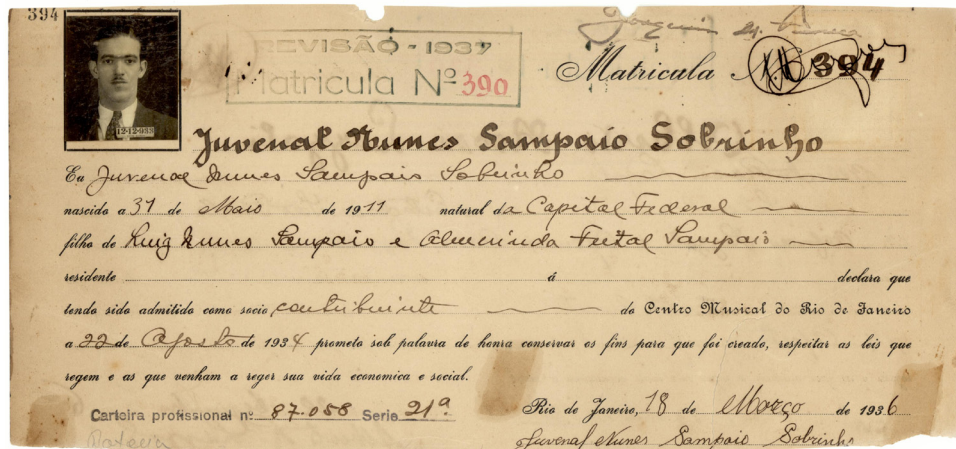 394
REVISÃO - 1937
Matricula Nº 390
Matricula 394
12-12-933
Juvenal Nunes Sampaio Sobrinho
Eu Juvenal Nunes Sampaio Sobrinho
nascido a 31 de Maio de 1911 natural da Capital Federal
filho de Luiz Nunes Sampaio e Almerinda Sampaio
residente á declara que
tendo sido admitido como socio contribuinte do Centro Musical do Rio de Janeiro
a 22 de Agosto de 1934 prometo sob palavra de honra conservar os fins para que foi creado, respeitar as leis que
regem e as que venham a reger sua vida economica e social.
Carteira profissional nº 87.058 Serie 21ª
Rio de Janeiro, 18 de Março de 1936
Juvenal Nunes Sampaio Sobrinho